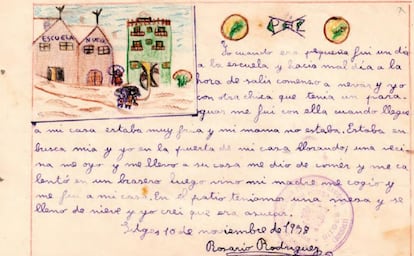 ESCUELA NUEVA
Yo cuando era pequeña fui un dia
a la escuela y hacia mal dia a la
hora de salir comenso a nevar y yo
con otra chica que tenia un para-
guas me fui con ella cuando llegue
a mi casa estaba muy fria y mi mama no estaba. Estaba en
busca mia y yo en la puerta de mi casa llorando, una veci-
na me oyo y me llevo a su casa me dio de comer y me ca-
lentó en un brasero luego vino mi madre me cogio y
me fui a mi casa. En el patio teniamos una mesa y se
lleno de nieve y yo crei que era asucar.
Sitges 10 de noviembre de 1938
Rosario Rodriguez